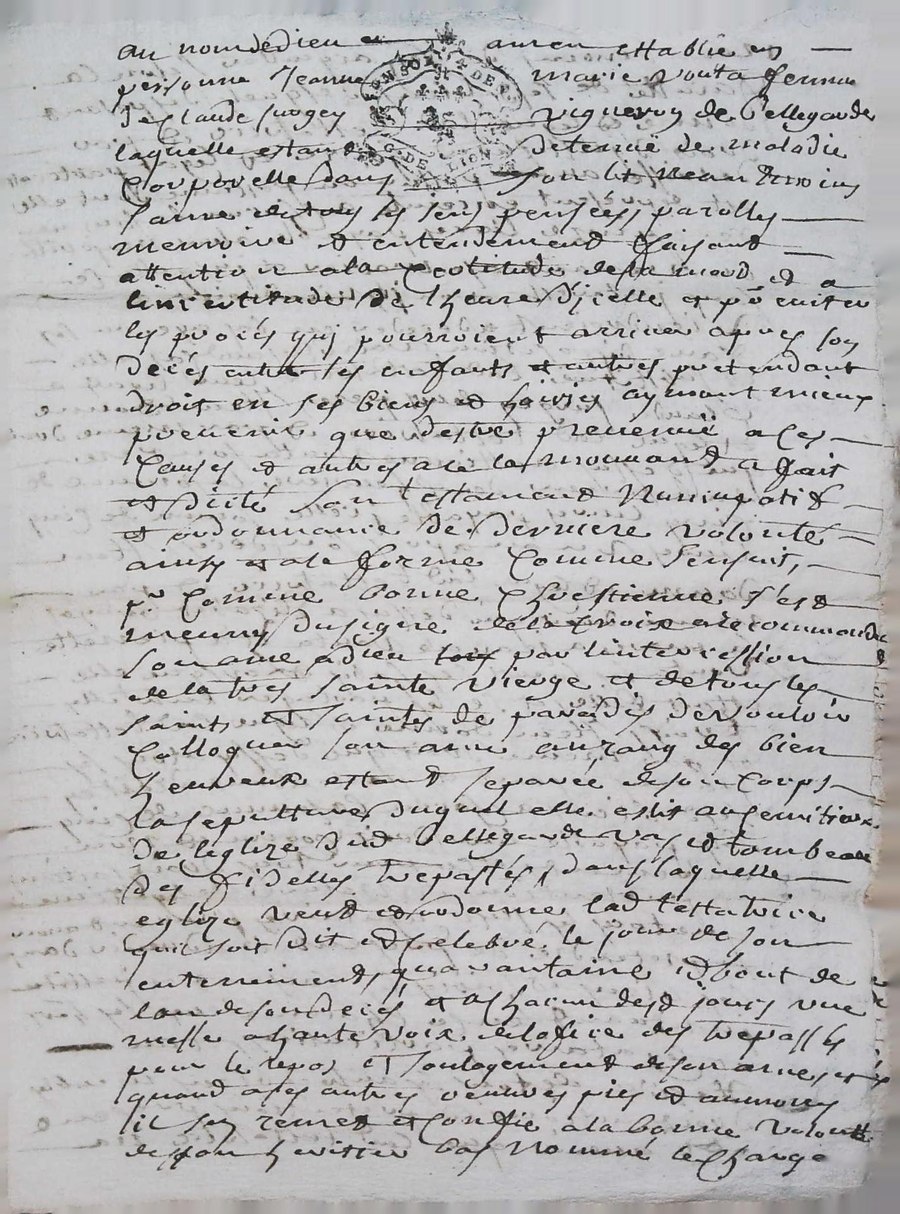 au nom de dieu amen establie en
personne Jeanne marie vouta femme
de Claude vigneron de bellegarde
laquelle estant detenuë de maladie
Corporelle dans son lit neantmoins
saine de tous ses sens pensées, parolles
memoire et entendement faisant
attention a la Certitude de la mord et a
lincertitude de lheure dicelle et po. eviter
les procés quj pourroient arriver apres son
decés entre ses enfants et autres pretendant
droit en ses biens et hoiries aymant mieux
prevenir que destre prevenuë a Ces
Causes et autres a ce la mouvand a fait
et dicté son testament Nuncupatif
et ordonnance de derniere volonté
ainsy et a la forme Comme sensuit,
pr. Comme bonne Chrestienne s'est
munny du signe de la Croix a recommandé
son ame a dieu par lintercession
de la tres sainte vierge et de tous les
saints et saintes de paradis de vouloir
Colloquer son ame au rang des bien
heureux estant separée de son Corps
la sepulture duquel elle eslit au semitiere
de leglize dud bellegarde vas et tombeau
des fidelles trepassés, dans laquelle
eglize veut et ordonne lad testatrice
quil soit dit et Celebré le jour de son
enterrement, quarantaine et bout de
lan de son decés et a chacun desd jours une
messe a haute voix de lofice des trepassés
pour le repos et soulagement de son ame, et
quand a ses autres oeuvres pies et aumones
il sen remet et Confie a la bonne volonté
de son heritier bas nommé le Charge